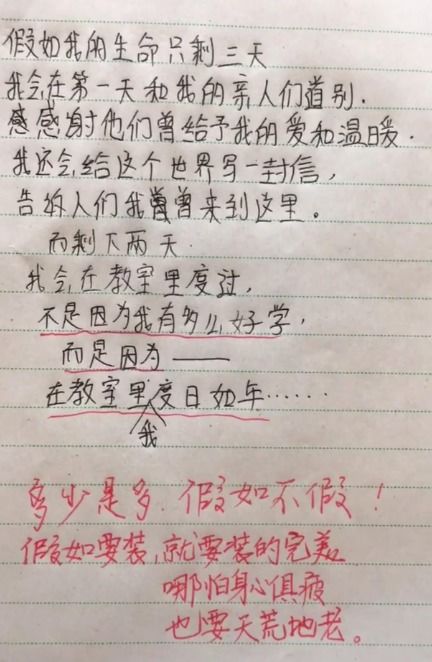 假如我的生命只剩三天
我会在第一天和我的亲人们道别.
感感谢他们曾给予我的爱和温暖.
我还会给这个世界写一封信,
告诉人们我曾曾来到这里。
而剩下两天.
我会在教室里度过,
不是因为我有多么好学,
而是因为——
在教室里度日如年……
我
多少是多.假如不假!
假如要装,就要装的完美
哪怕身心俱疲
也要天荒地老。